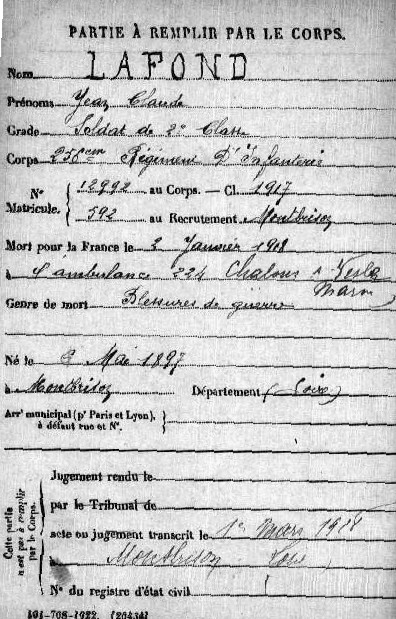 PARTIE À REMPLIR PAR LE CORPS.
Nom LAFOND
Prénoms Jean Claude
Grade Soldat de 2e Classe
Corps 258em Régiment D'Infanterie
N° Matricule. { 12992 au Corps. — Cl. 1917
592 au Recrutement Montbrison
Mort pour la France le 2 Janvier 1918
à l'ambulance 224 Chalons s Vesle
Marne
Genre de mort Blessures de guerre
Né le Mai 1897
à Montbrison Département (Loire)
Arr' municipal (p' Paris et Lyon), }
à défaut rue et N°.
Cette partie n'est pas à remplir par le Corps.
Jugement rendu le
par le Tribunal de
acte ou jugement transcrit le 1er Mars 1918
à Montbrison Loire
N° du registre d'état civil
101-708-1922. [26434]